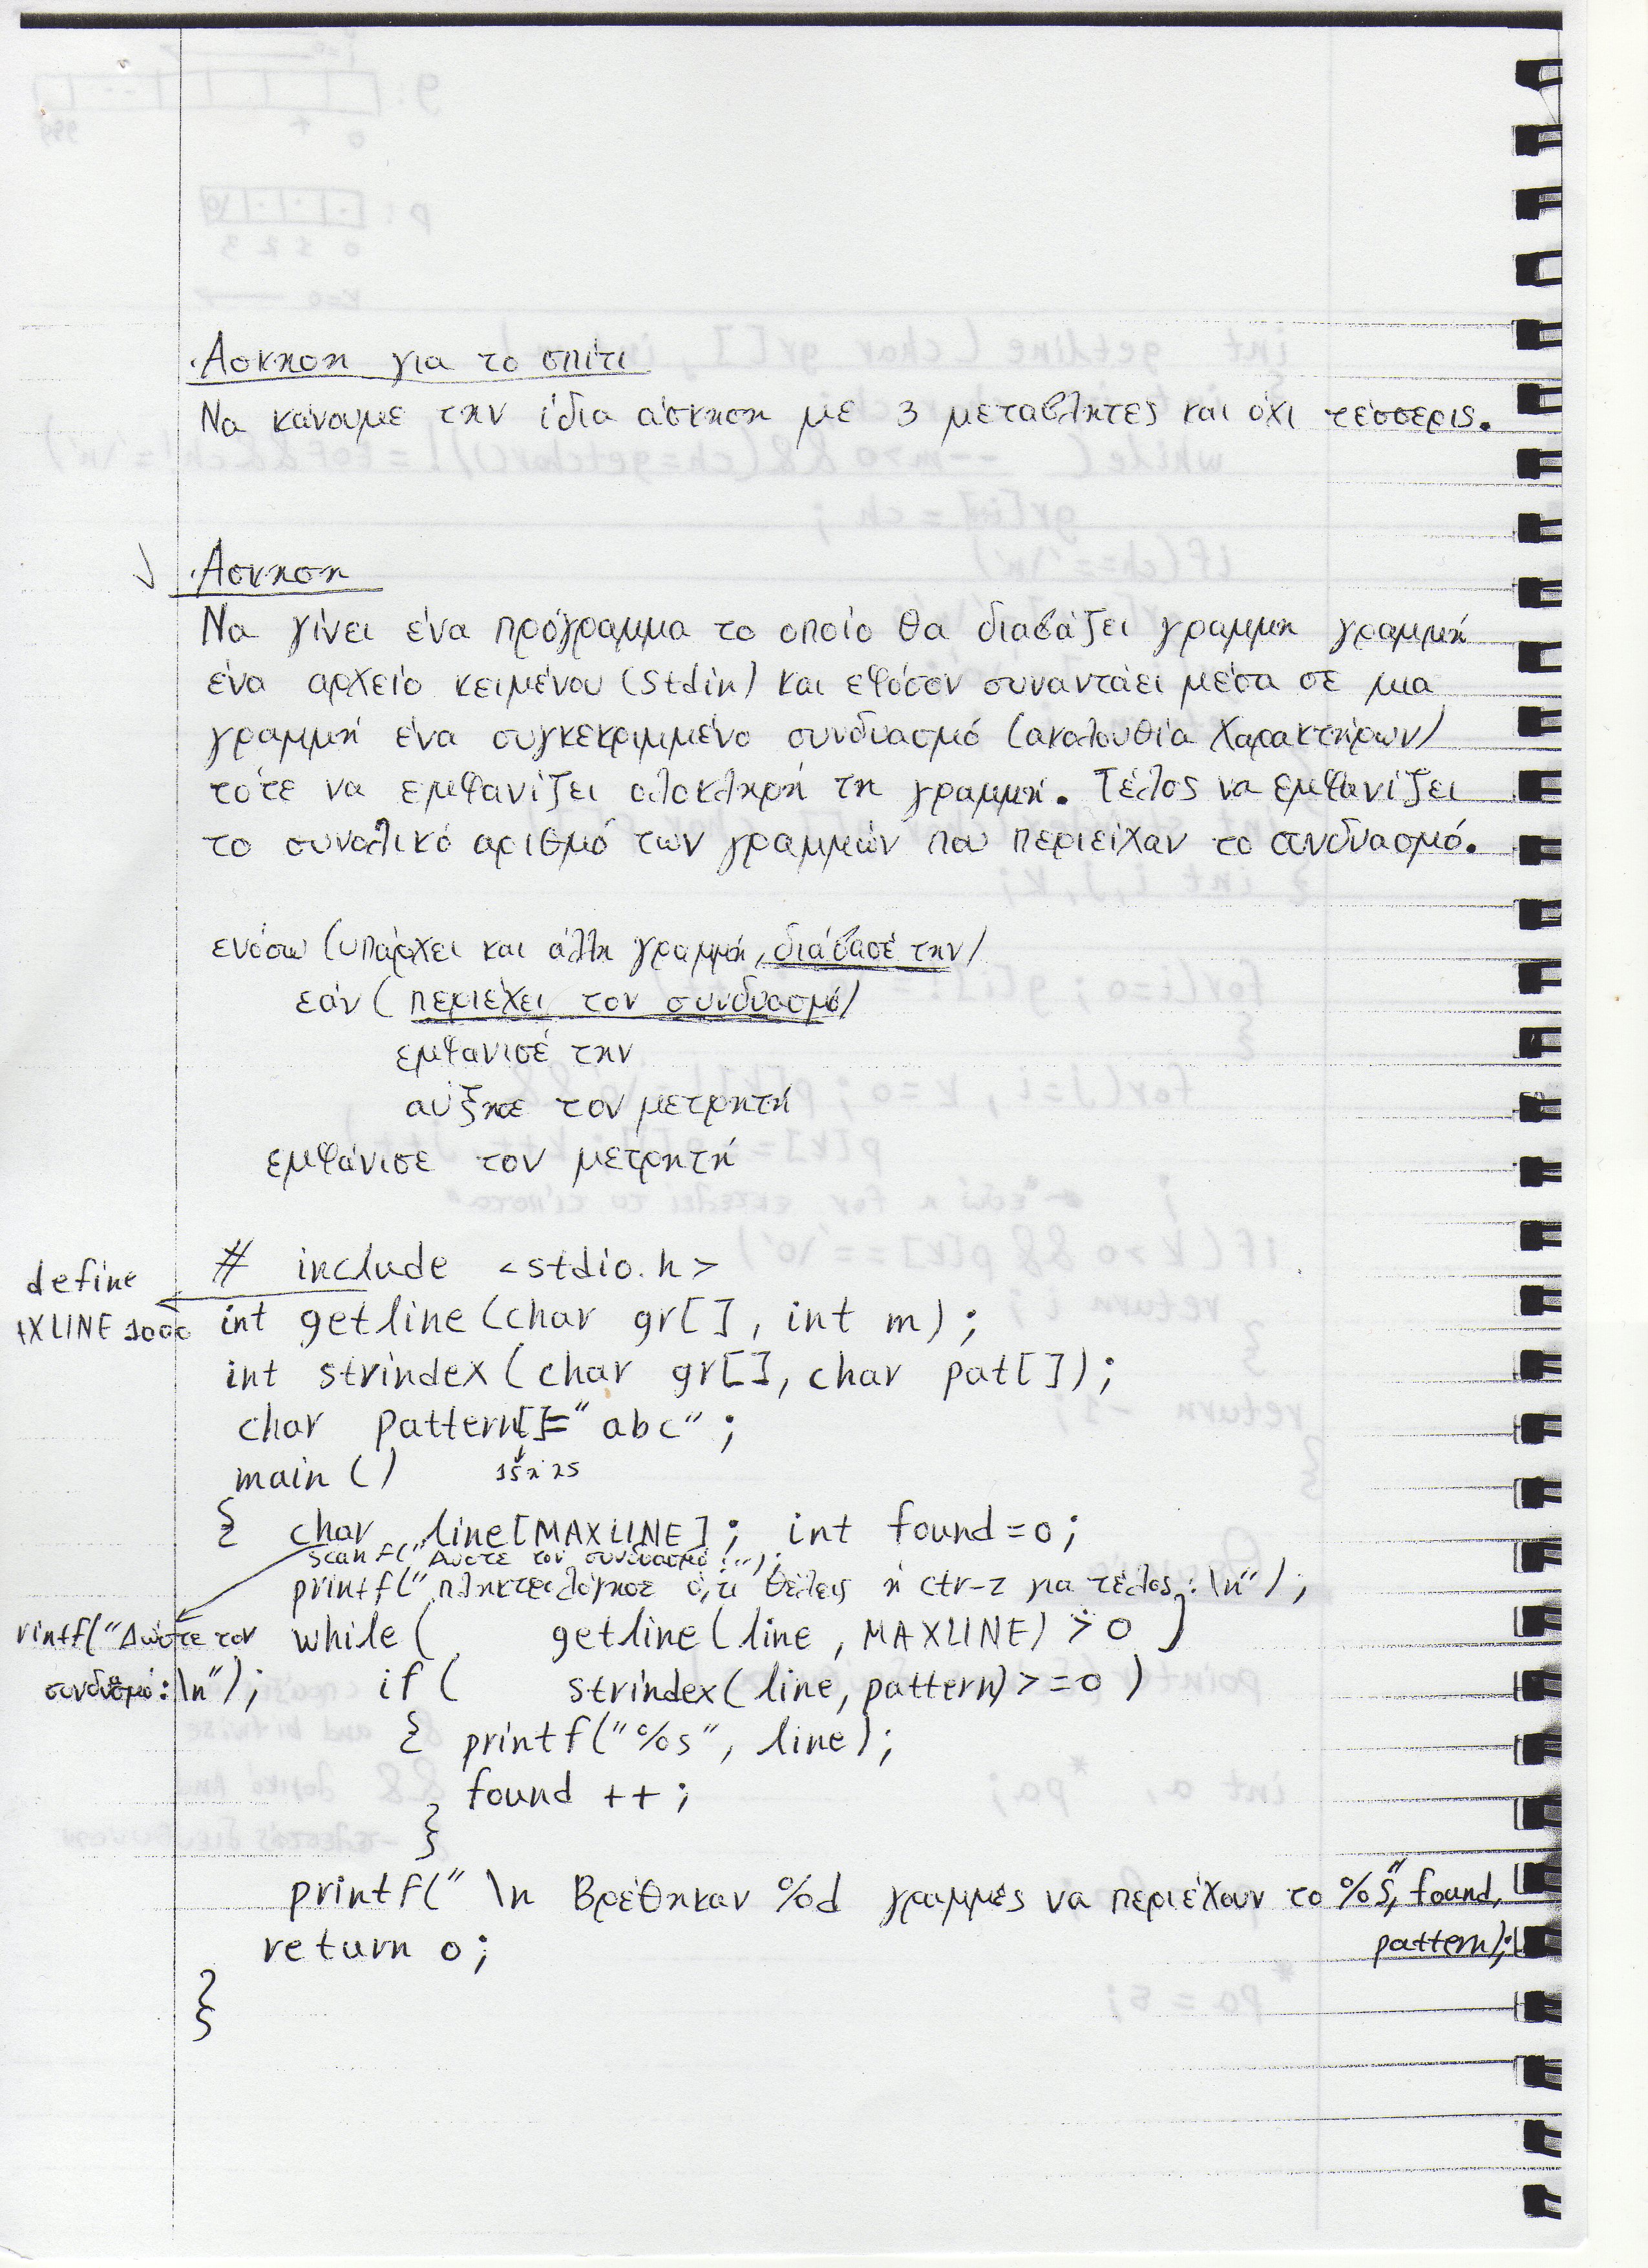 Άσκηση για το σπίτι
Να κάνουμε την ίδια άσκηση με 3 μεταβλητές και όχι τέσσερις.
Άσκηση
Να γίνει ένα πρόγραμμα το οποίο θα διαβάζει γραμμή γραμμή
ένα αρχείο κειμένου (stdin) και εφόσον συναντάει μέσα σε μια
γραμμή ένα συγκεκριμμένο συνδυασμό (ακολουθία χαρακτήρων)
τότε να εμφανίζει ολόκληρη τη γραμμή. Τέλος να εμφανίζει
το συνολικό αριθμό των γραμμών που περιείχαν το συνδυασμό.
ενόσω (υπάρχει και άλλη γραμμή, διάβασέ την)
εάν (περιέχει τον συνδυασμό)
εμφάνισέ την
αύξησε τον μετρητή
εμφάνισε τον μετρητή
# include <stdio.h>
define
XLINE 1000
int getline(char gr[], int m);
int strindex(char gr[], char pat[]);
char pattern[]="abc";
main()
{ char line[MAXLINE]; int found=0;
scanf("Δώστε τον συνδυασμό:");
printf("πληκτρολόγησε ό,τι θέλεις ή ctr-z για τέλος:\n");
rintf("Δώστε τον
συνδυσμό:\n");
while( getline(line, MAXLINE) > 0 )
if ( strindex(line, pattern)>=0 )
{ printf("%s", line);
found ++;
}
printf("\n Βρέθηκαν %d γραμμές να περιέχουν το %s", found,
pattern);
return 0;
}